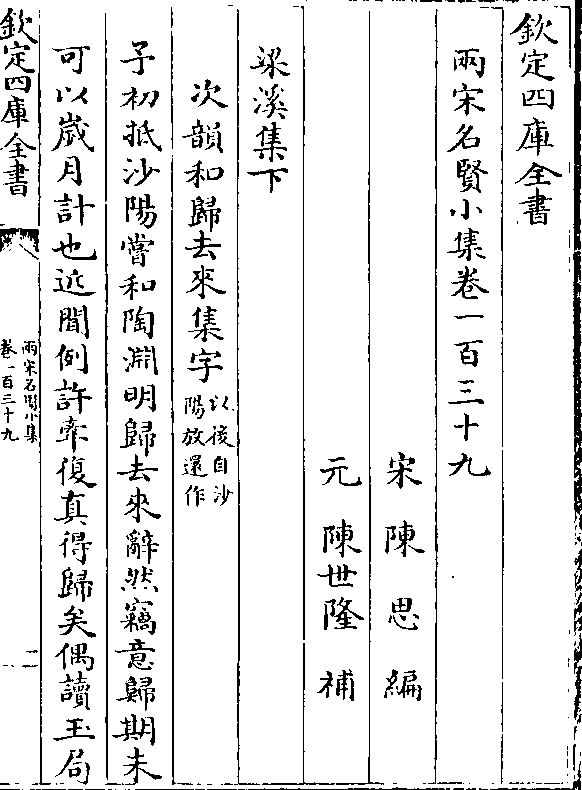 欽定四庫全書
兩宋名賢小集卷一百三十九
宋 陳思 編
元 陳世隆 補
梁溪集下
次韻和歸去來集字以後自沙
陽放還作
子初抵沙陽嘗和陶淵明歸去來辭然竊意歸期未
可以歲月計也近聞例許牽復真得歸矣偶讀玉局
欽定四庫全書
兩宋名賢小集
卷一百三十九
一